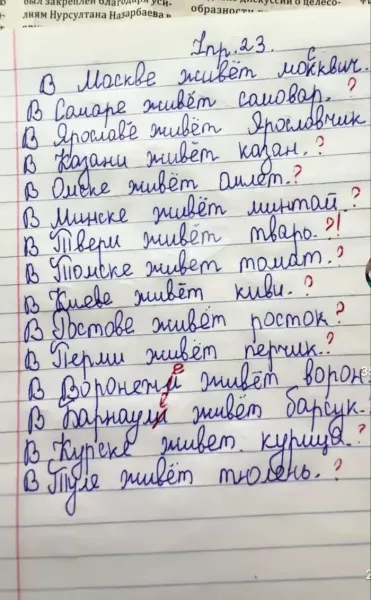 был закреплён благодаря уси-
лиям Нурсултана Назарбаева в
дискуссии о целесо-
образности
Упр. 23.
В Москве живёт москвич.
В Самаре живёт самовар. ?
В Ярославе живёт Ярославчик
В Казани живёт казан. ?
В Омске живёт омлет. ?
В Минске живёт минтай ?
В Твери живёт тварь. ?!
В Томске живёт томат. ?
В Киеве живёт киви. ?
В Ростове живёт росток ?
В Перми живёт перчик. ?
В Воронеже живёт ворон
В Барнауле живёт барсук.
В Курске живет. курица. ?
В Туле живёт тюлень. ?